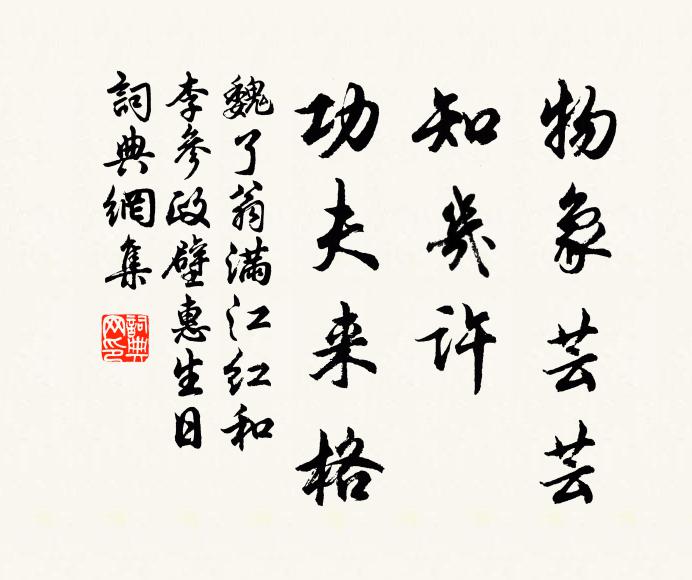 物象芸芸
知几许
功夫来格
魏了翁满江红和
李参政壁惠生日
詞典網集
詞典网印